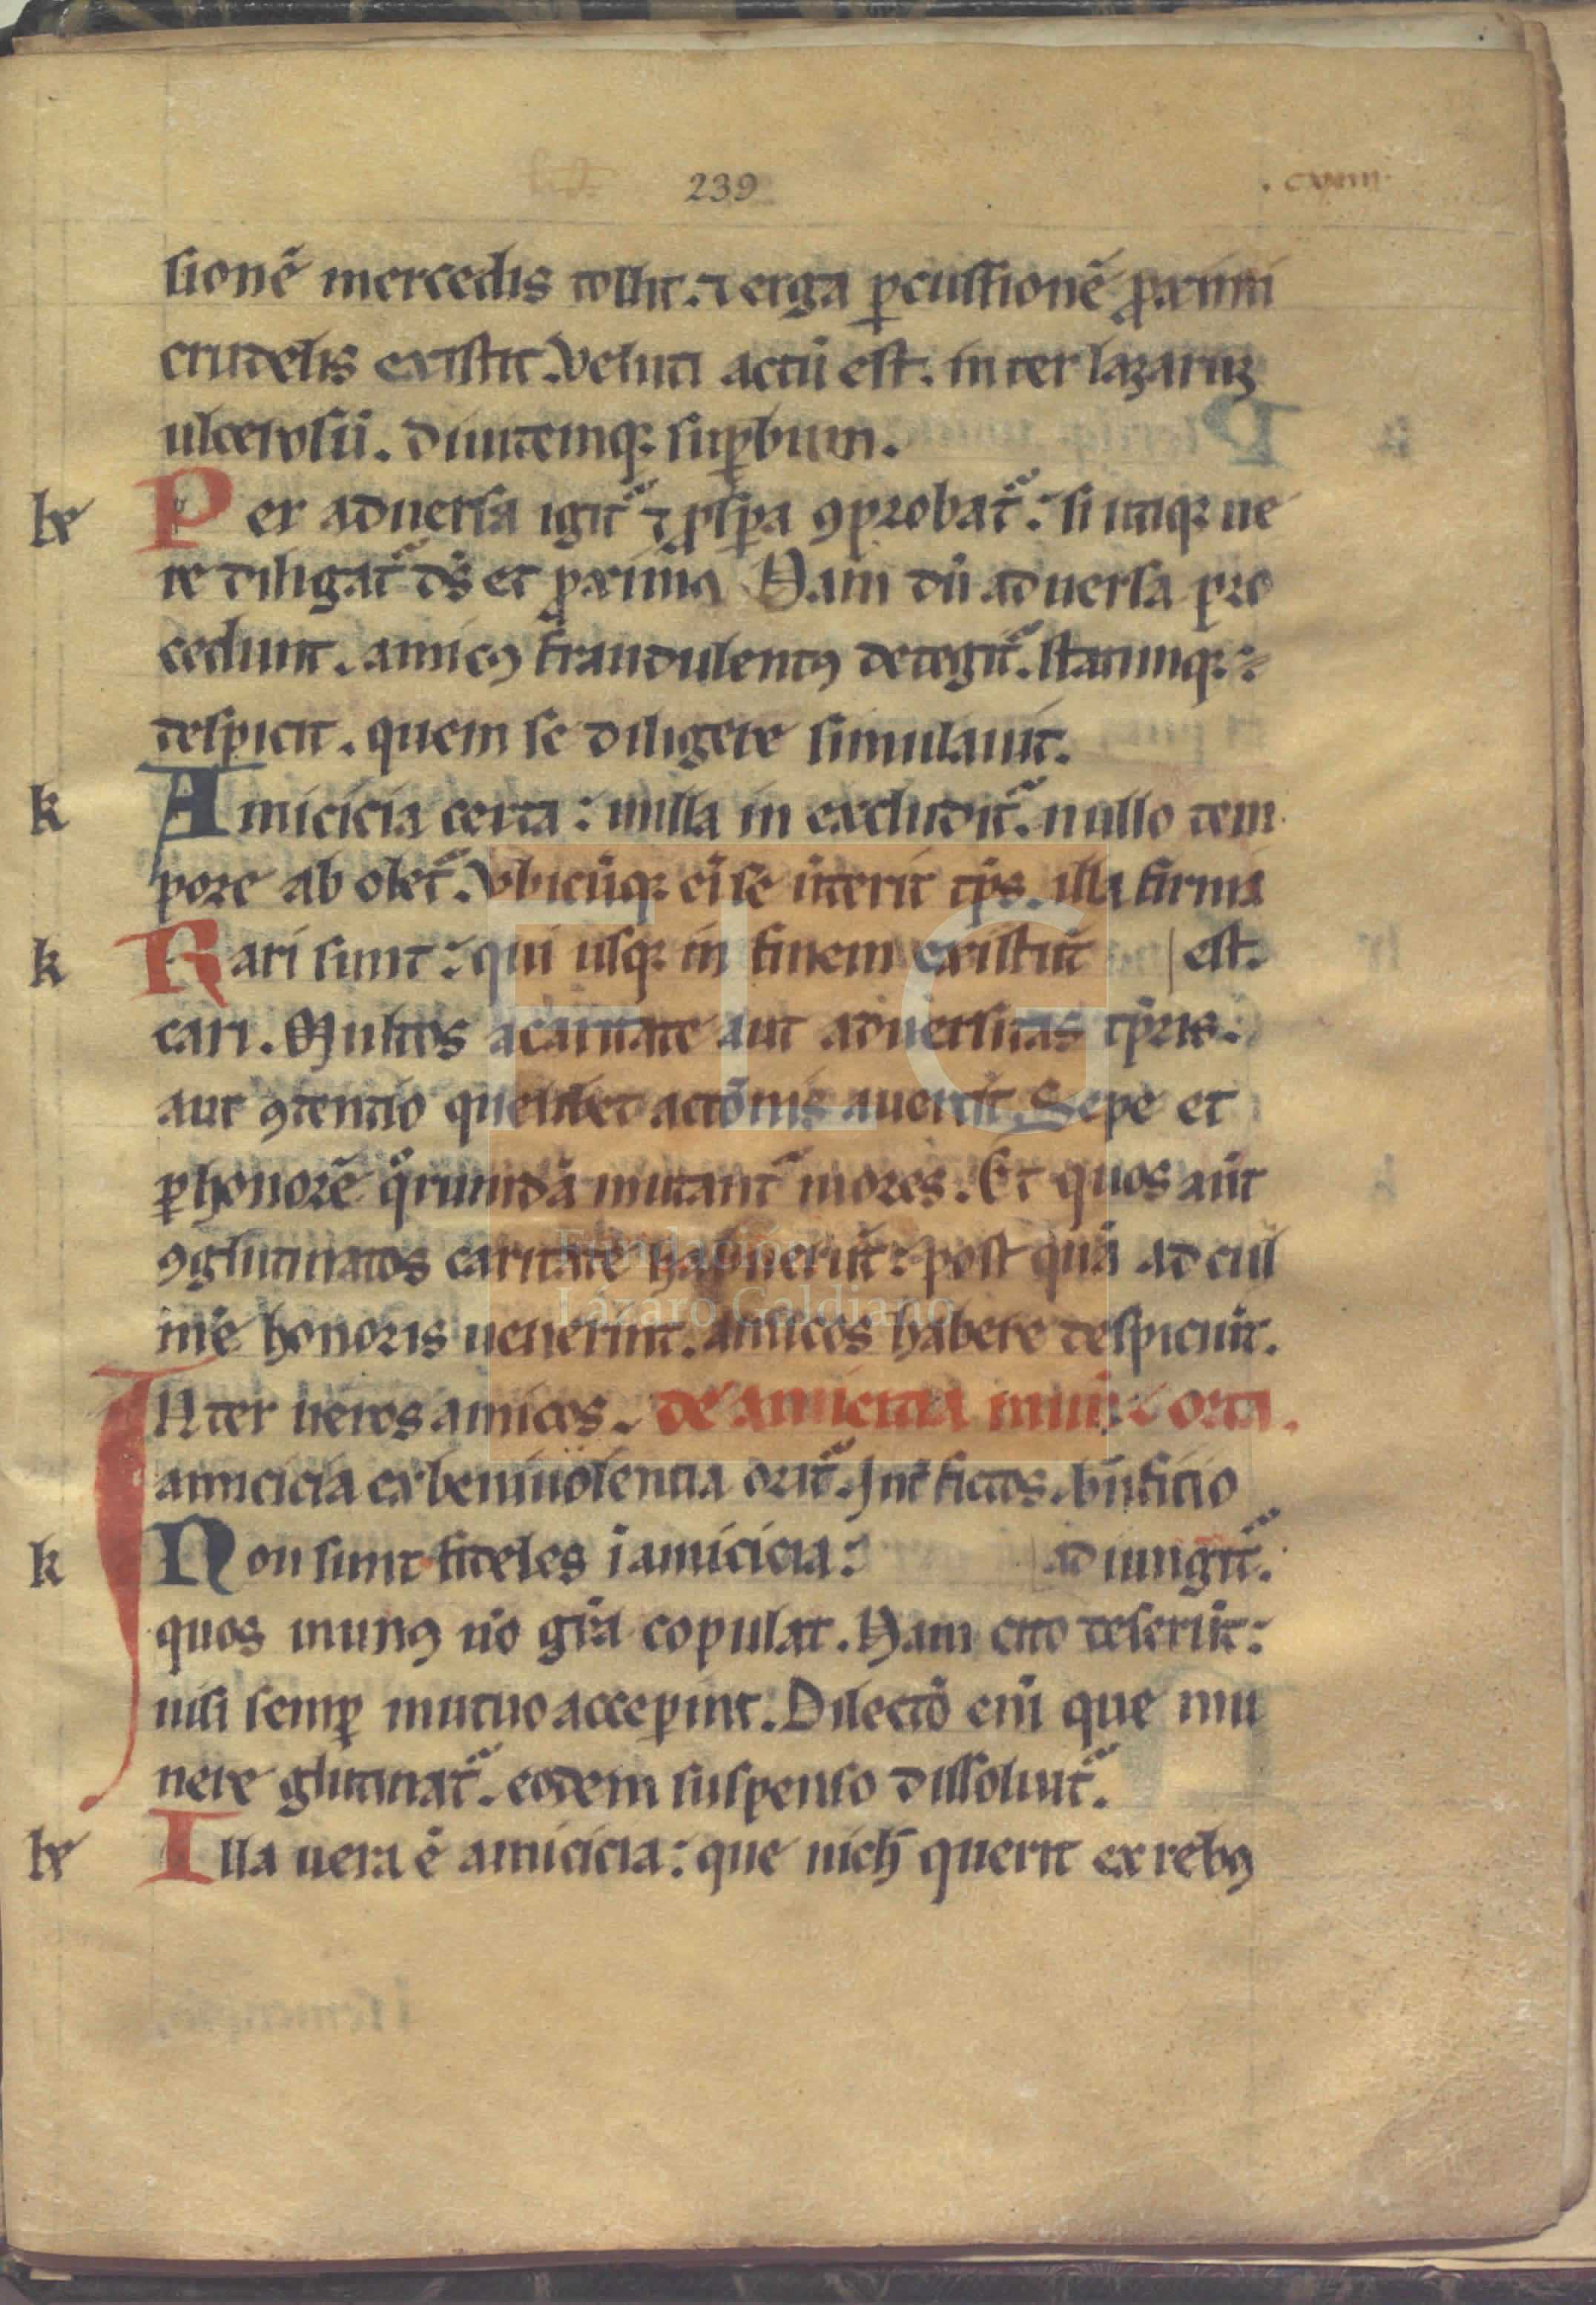 239
.cxviiii.
sionē mercedis tollit. ⁊ erga ꝑcussionē ꝓximi
crudelis existit. Veluti actū est. inter lazarūꝫ
ulcerosū. diuitemqꝫ suꝑbum.
lx Per aduersa igit᷑ ⁊ ꝓsꝑa ꝯprobat᷑: si utiqꝫ ue
re diligat᷑ ds̄ et ꝓximꝰ Nam dū aduersa pro
cedunt. amicꝰ fraudulentꝰ detegit᷑. statimqꝫ:
despicit. quem se diligere simulauit.
k Amicicia certa: nulla ui excludit᷑. nullo tem
pore ab olet᷑. Vbicūqꝫ eī se ūterit tp̄s. illa firma
k Rari sunt: qui usqꝫ in finem existūt | est.
cari. Multos a caritate aut aduersitas tp̄ris.
aut ꝯtentio quelibet actōnis auertit. Sepe et
ꝑ honorē qͦrundā mutant᷑ mores. Et quos añt
ꝯglutinatos caritate habuerūt: post quā ad cul
mē honoris uenerint. amicos habere despiciūt.
Inter ueros amicos. de amicitia mun̄e orta.
amicicia ex beniuolentia orit᷑. Int̄ fictos. bn̄ficio
k Non sunt fideles ī amicicia: | ad iungit᷑.
quos munꝰ nō grā copulat. Nam cito deserūt:
nisi semꝑ mutuo acceꝑint. Dilectō enī que mu
nere glutinat᷑. eodem suspenso dissoluit᷑.
lx Illa uera ē amicicia: que nich̄ querit ex rebꝰ
Fundación
Lázaro Galdiano